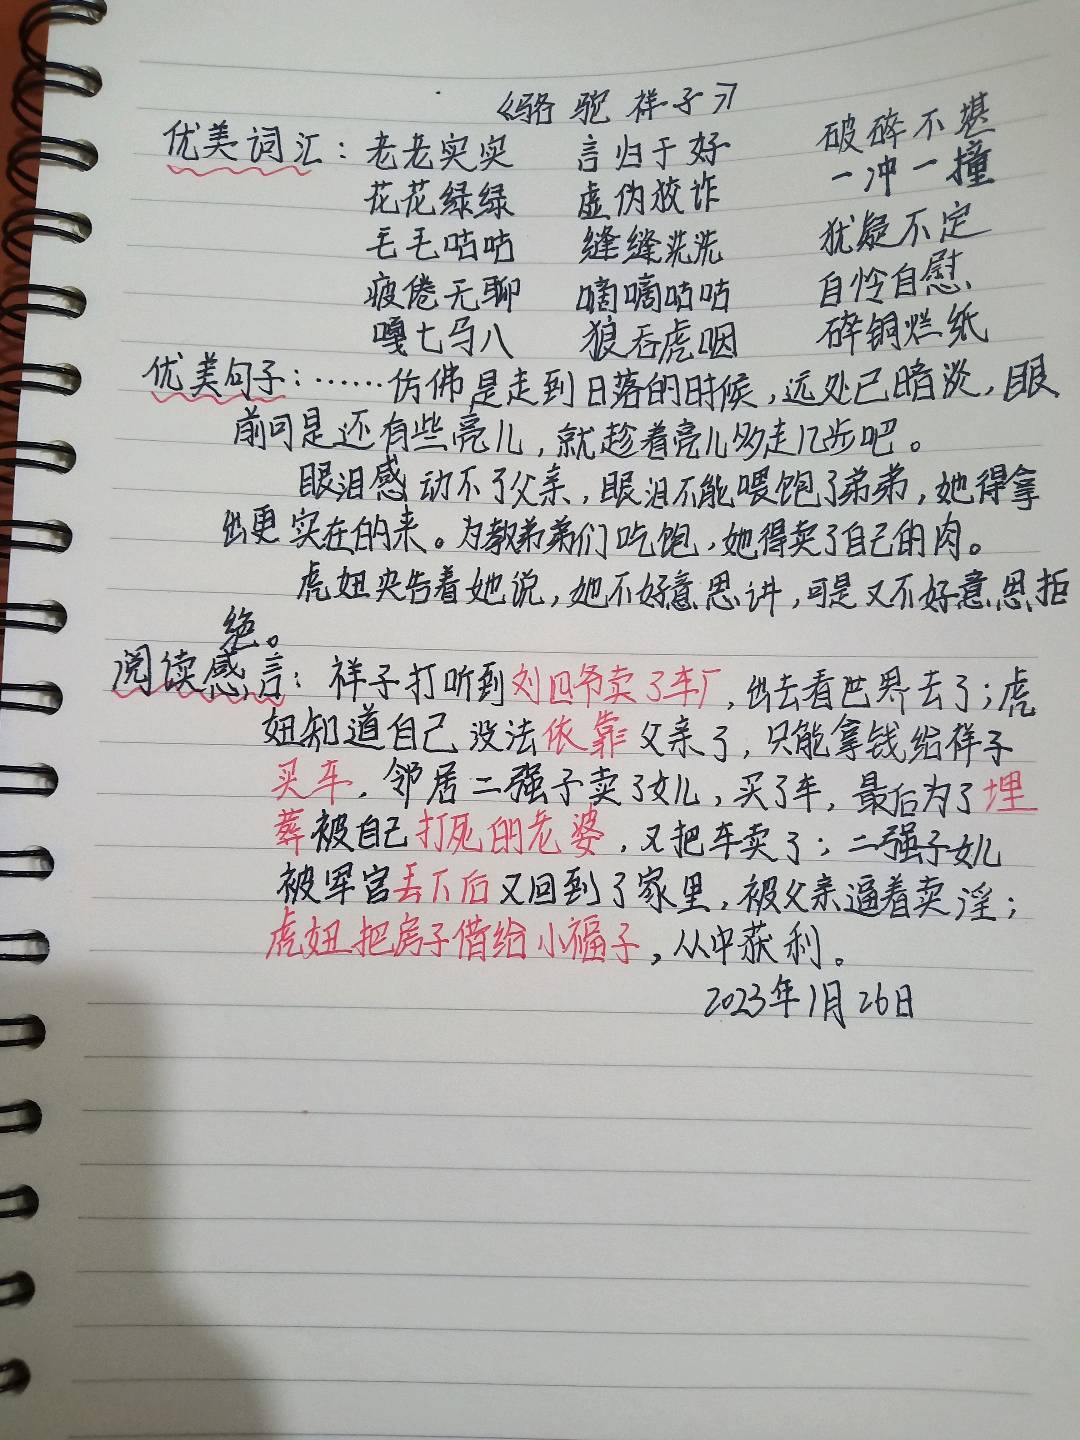 《骆驼祥子》
优美词汇：老老实实 言归于好 破碎不堪
花花绿绿 虚伪狡诈 一冲一撞
毛毛咕咕 缝缝洗洗 犹疑不定
疲倦无聊 嘀嘀咕咕 自怜自慰
嘎七马八 狼吞虎咽 碎铜烂纸
优美句子：……仿佛是走到日落的时候，远处已暗淡，眼
前可是还有些亮儿，就趁着亮儿多走几步吧。
眼泪感动不了父亲，眼泪不能喂饱了弟弟，她得拿
出更实在的来。为教弟弟们吃饱，她得卖了自己的肉。
虎妞央告着她说，她不好意思讲，可是又不好意思拒
绝。
阅读感言：祥子打听到刘四爷卖了车厂，出去看世界去了；虎
妞知道自己没法依靠父亲了，只能拿钱给祥子
买车，邻居二强子卖了女儿，买了车，最后为了埋
葬被自己打死的老婆，又把车卖了；二强子女儿
被军官丢下后又回到了家里，被父亲逼着卖淫；
虎妞把房子借给小福子，从中获利。
2023年1月26日